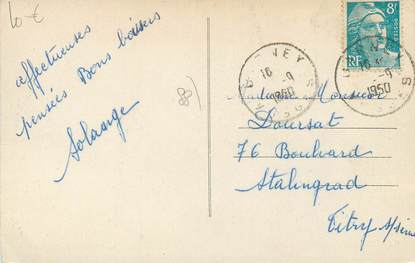 10 €
affectueuses
pensées Bons baisers
Solange
80
8F
RF
POSTES
16
-9
1950
16
-9
1950
Monsieur
Doursat
76 Boulvard
Stalingrad
Vitry s/seine